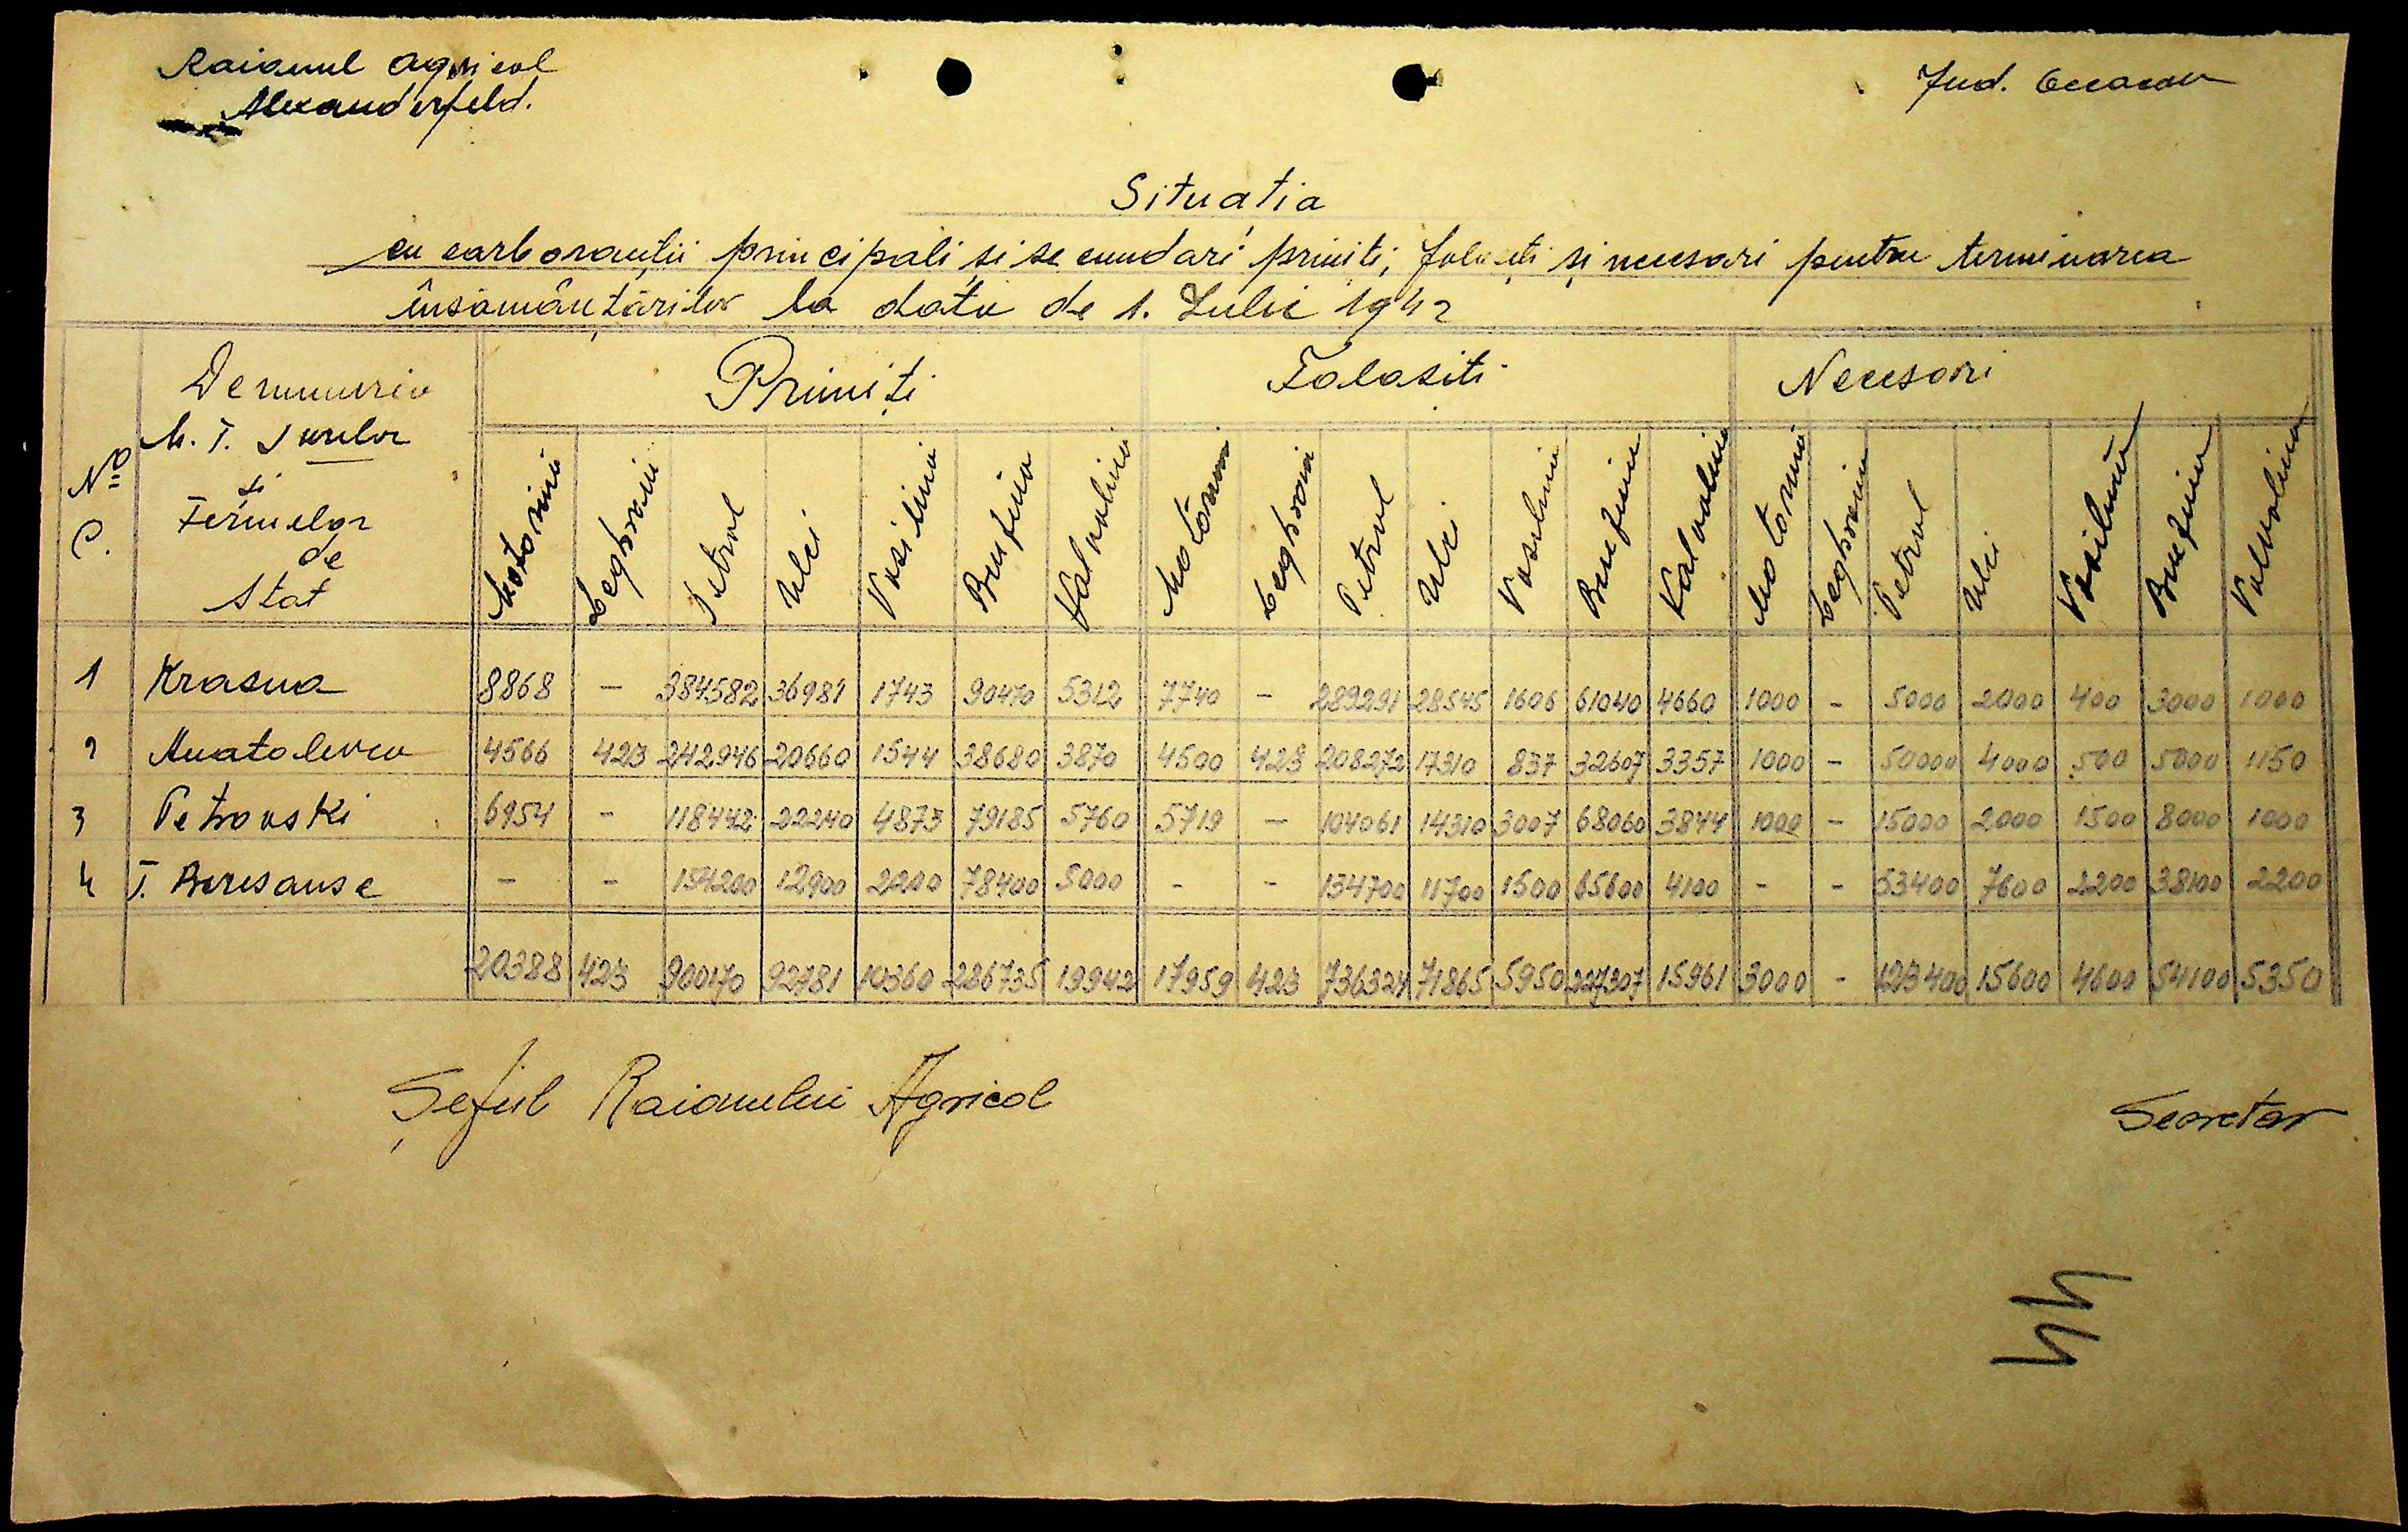 Raionul Agricol
Alexanderfeld.
Jud. Oceacov
Situatia
cu carboranții principali și secundari primiti, folositi și necesari pentru terminarea
însămânțărilor la data de 1. Iulie 1942
No C. Denumirea M. T. S urilor si Fermelor de Stat Primiți Folositi Necesari
Motorină Legroin Petrol Ulei Vasilina Benzina Valvolina Motorina Legroin Petrol Ulei Vasilina Benzina Valvolina Motorina Legroin Petrol Ulei Vasilina Benzina Valvolina
1 Krasna 8868 - 384582 36981 1743 90470 5312 7740 - 289291 28545 1606 61040 4660 1000 - 5000 2000 400 3000 1000
2 Anatolevca 4566 423 242946 20660 1544 38680 3870 4500 423 208272 17310 837 32607 3357 1000 - 50000 4000 500 5000 1150
3 Petrovski 6954 - 118442 22240 4873 79185 5760 5719 - 104061 14310 3007 68060 3844 1000 - 15000 2000 1500 8000 1000
4 F. Beresanse - - 154200 12900 2200 78400 5000 - - 134700 11700 1500 65600 4100 - - 53400 7600 2200 38100 2200
20388 423 900170 92781 10360 286735 19942 17959 423 736324 71865 5950 227307 15961 3000 - 123400 15600 4600 54100 5350
Șeful Raionului Agricol
Secretar
44